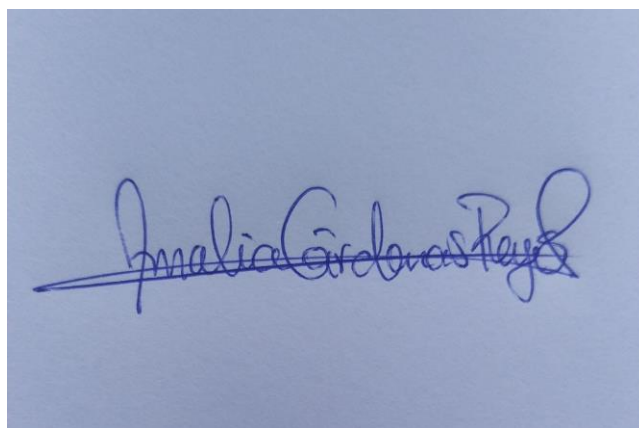 Amalia Cárdenas Reyes